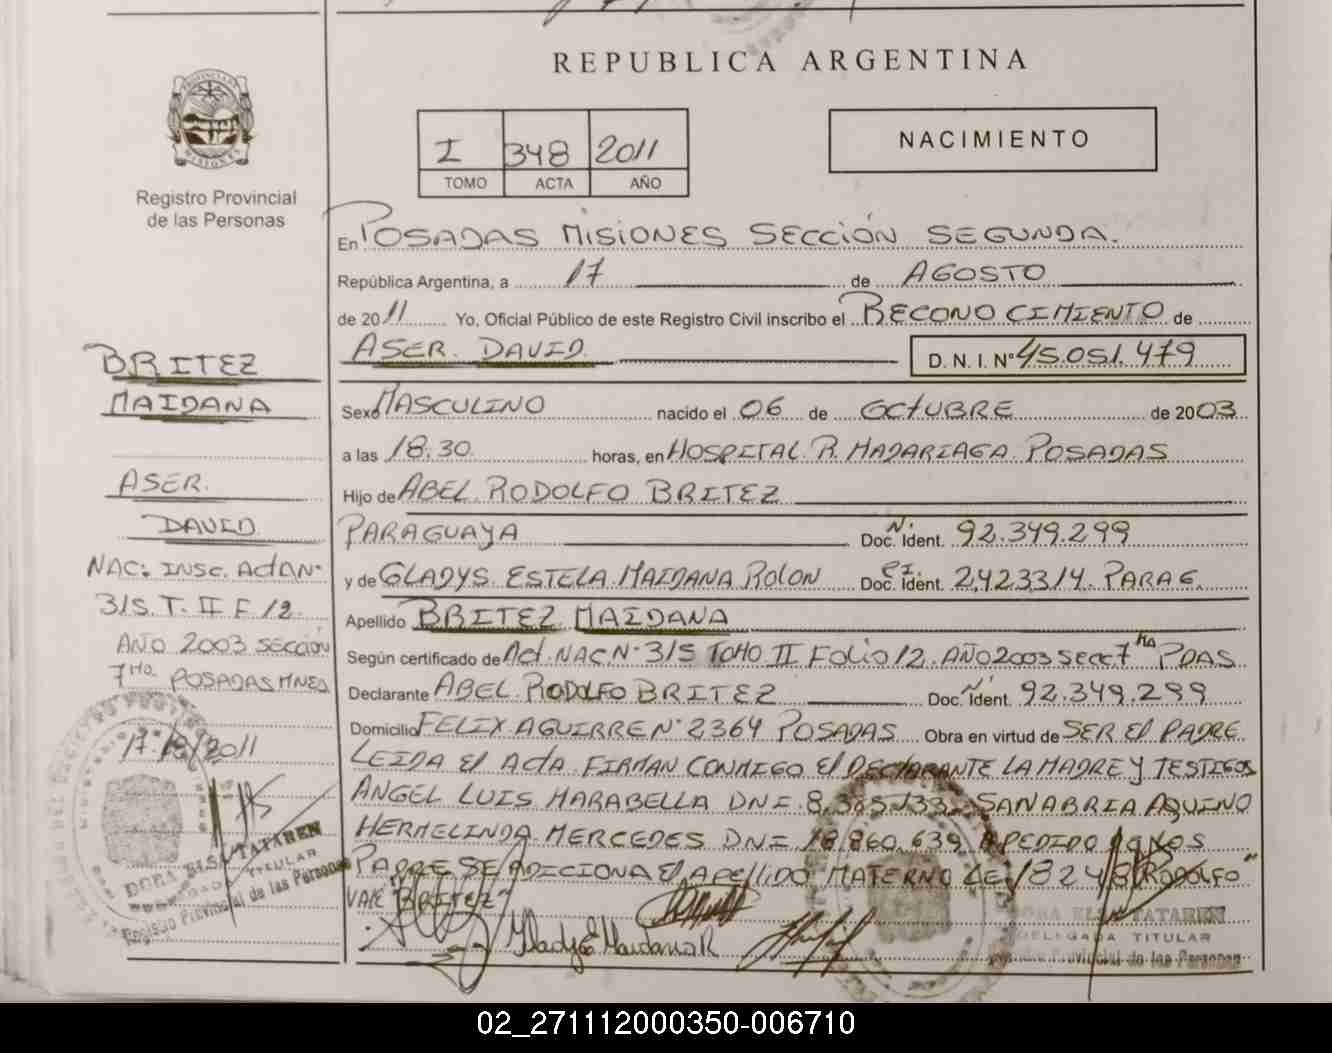 REPUBLICA ARGENTINA
PROVINCIA DE MISIONES
Registro Provincial
de las Personas
I 348 2011
TOMO ACTA AÑO
NACIMIENTO
En POSADAS MISIONES SECCIÓN SEGUNDA.
República Argentina, a 17 de AGOSTO
de 2011 Yo, Oficial Público de este Registro Civil inscribo el RECONOCIMIENTO de
ASER. DAVID. D. N. I. Nº 45.051.479
Sexo MASCULINO nacido el 06 de OCTUBRE de 2003
a las 18.30 horas, en HOSPITAL R. MADARIAGA POSADAS
Hijo de ABEL RODOLFO BRITEZ
PARAGUAYA Doc. Nº Ident. 92.349.299
y de GLADYS ESTELA MAIDANA ROLON Doc. CI. Ident. 2,423314. PARAG.
Apellido BRITEZ MAIDANA
Según certificado de Act. NAC Nº 315 TOMO II FOLIO 12. AÑO 2003 SECC 7ma PDAS
Declarante ABEL RODOLFO BRITEZ Doc. Nº Ident. 92.349.299
Domicilio FELIX AGUIRRE Nº 2364 POSADAS Obra en virtud de SER El PADRE
LEIDA El ACTA FIRMAN CONMIGO El DECLARANTE LA MADRE Y TESTIGOS
ANGEL LUIS MARABELLA DNI 8.305.133. SANABRIA AQUINO
HERMELINDA MERCEDES DNI 18.860.639 A PEDIDO DE LOS
PADRE SE ADICIONA El APELLIDO MATERNO LEY 18248 "RODOLFO"
VALE "BRITEZ"
Gladys E Maidana R
DORA ELSA TATAREN
DELEGADA TITULAR
Registro Provincial de las Personas
BRITEZ
MAIDANA
ASER.
DAVID.
NAC: INSC. Act AN·
315. T. II F 12.
AÑO 2003 SECCIÓN
7MA. POSADAS MNES
17/8/2011
DORA ELSA TATAREN
DELEGADA TITULAR
Registro Provincial de las Personas
02_271112000350-006710